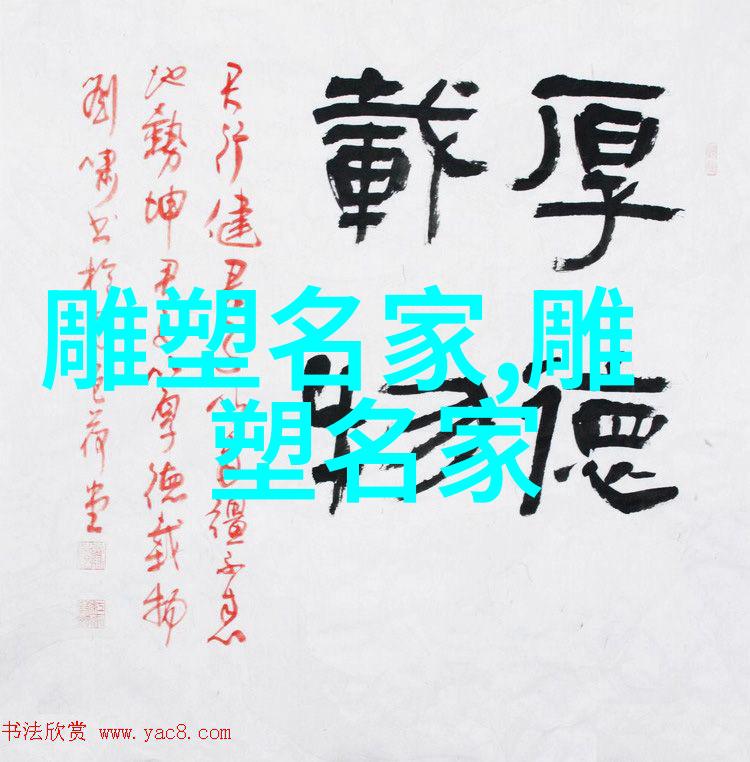 厚德
載物
天行健君子以自彊不息
地勢坤君子以厚德載物
劉嘯书於荷堂
雕塑名家,雕
塑名家
书法欣赏 www.yac8.com